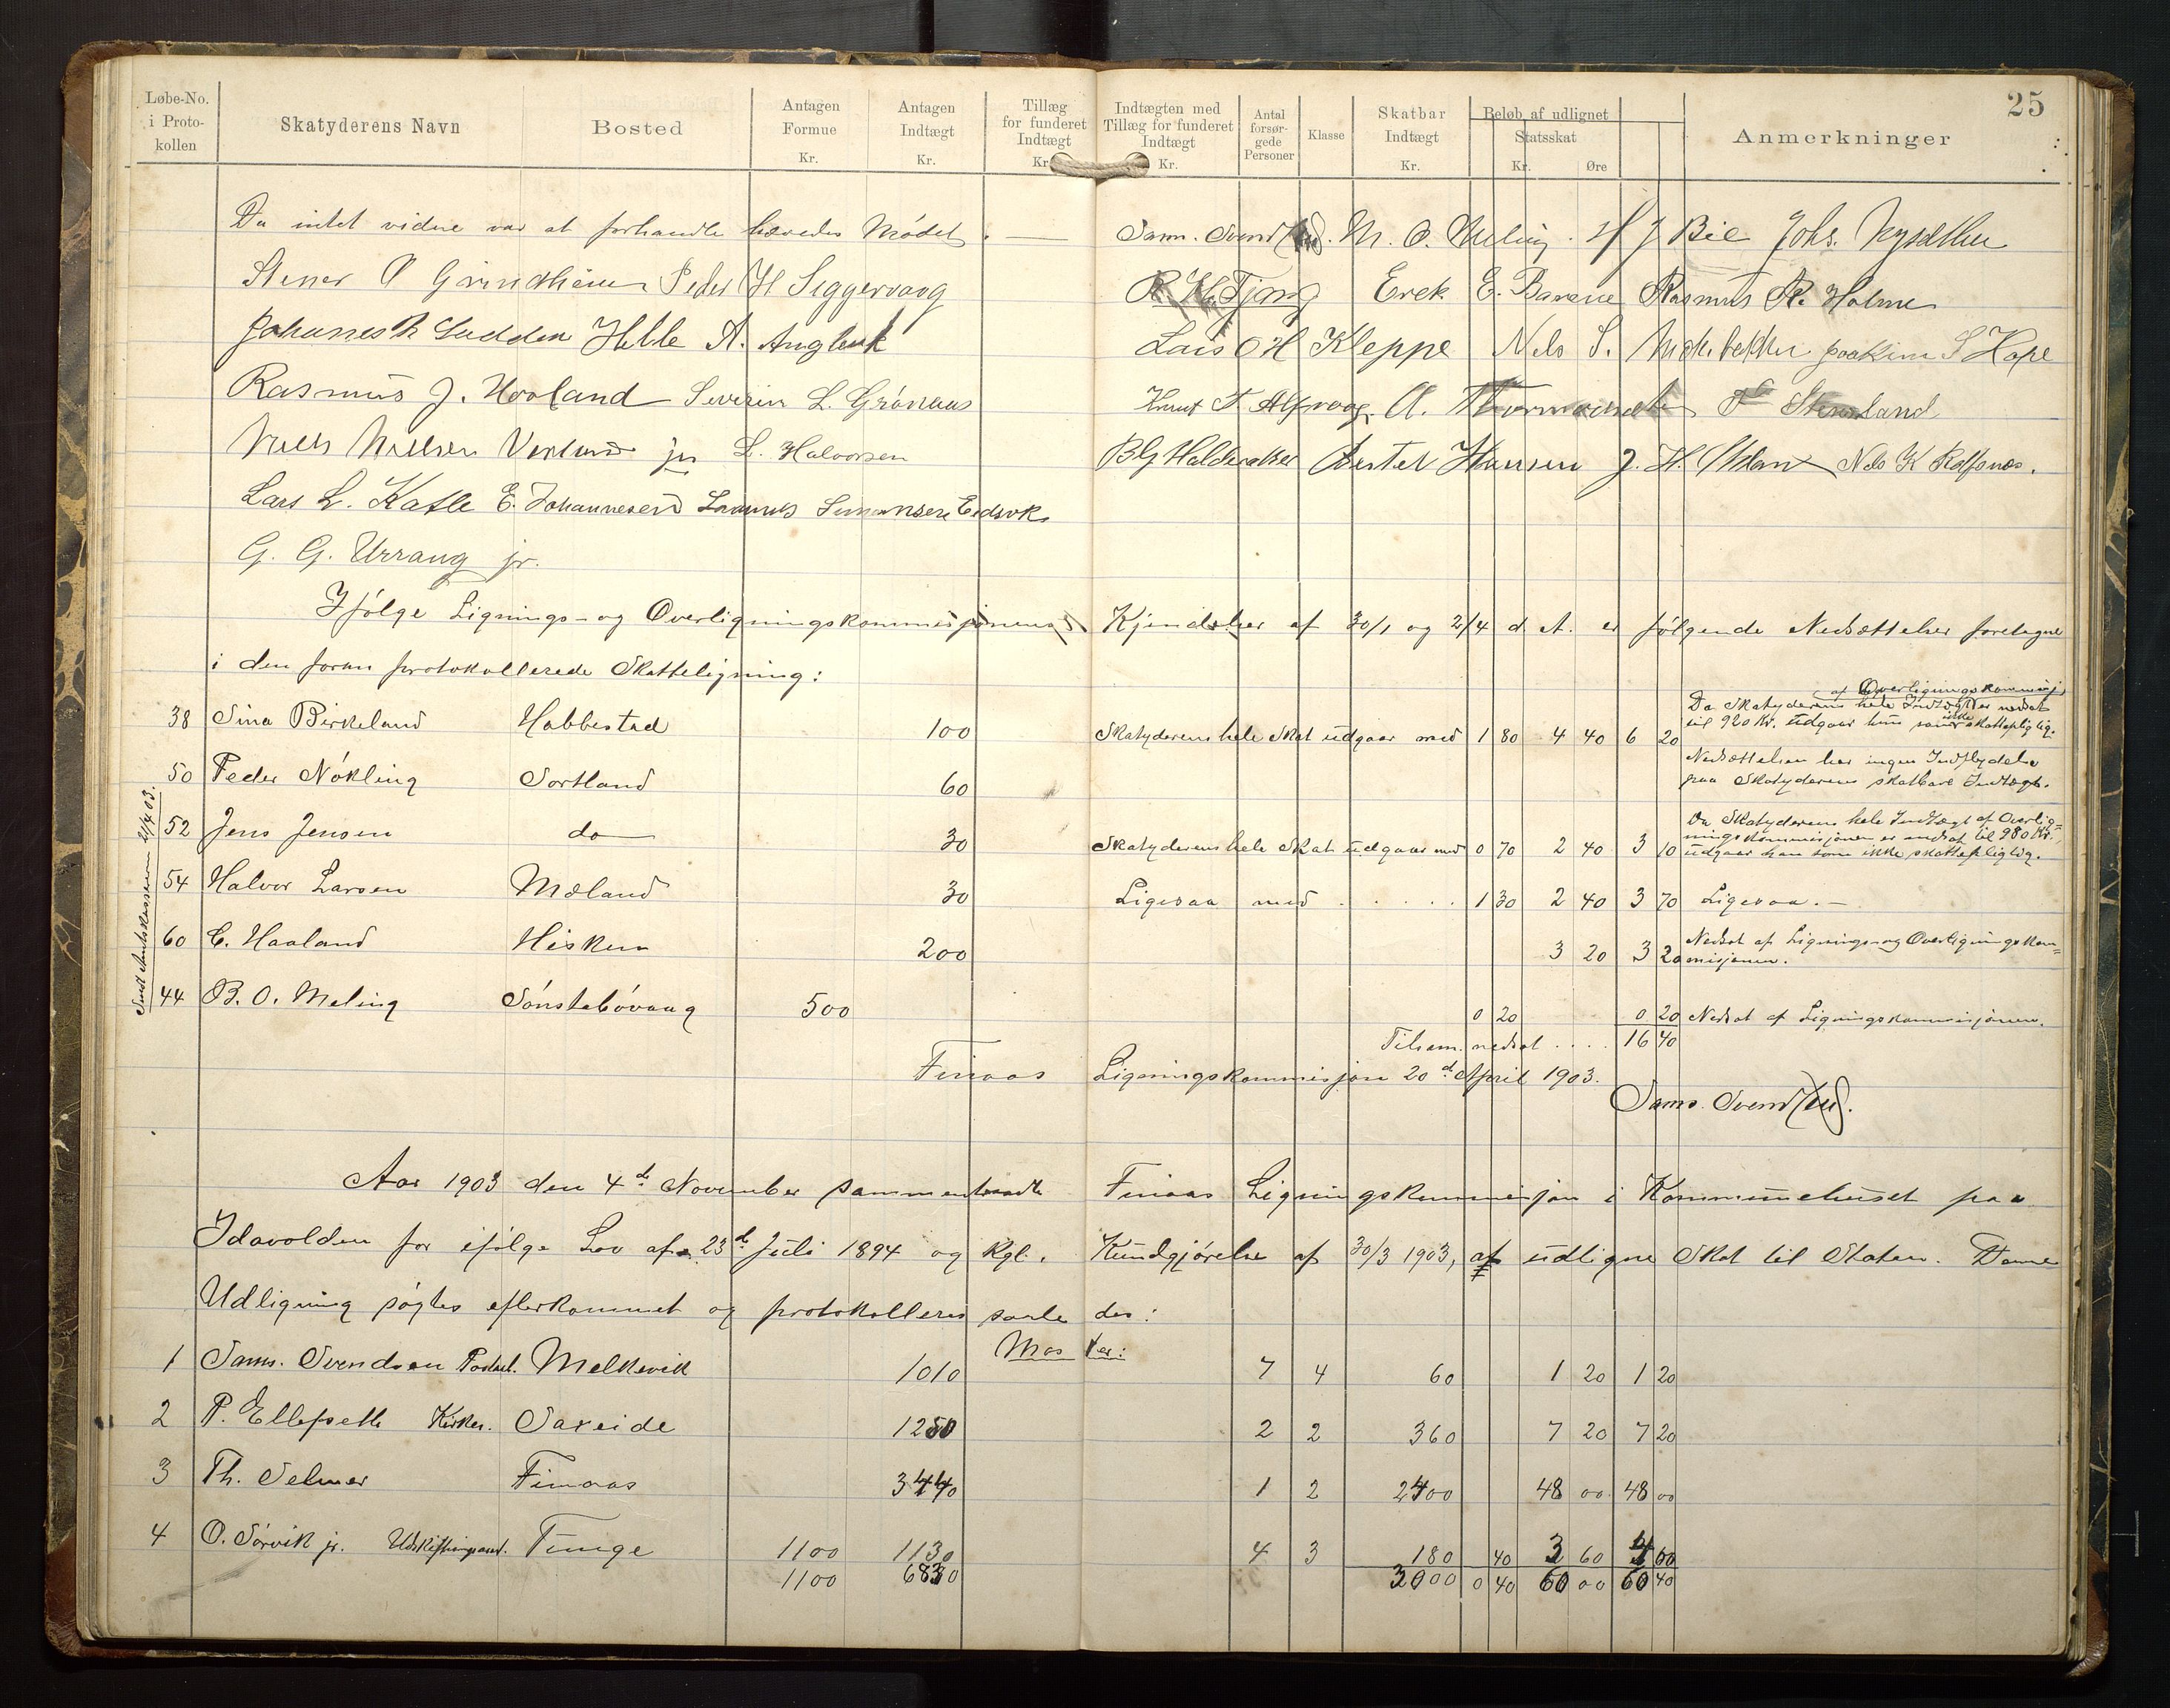 25
Løbe-No. i Proto-kollen | Skatyderens Navn | Bosted | Antagen Formue Kr. | Antagen Indtægt Kr. | Tillæg for funderet Indtægt Kr. | Indtægten med Tillæg for funderet Indtægt Kr. | Antal forsør-gede Personer | Klasse | Skatbar Indtægt Kr. | Beløb af udlignet Statsskat Kr. Øre | Anmerkninger
Da intet videre var at forhandle hævedes Mødet.
Sam. Svendsen. M. O. Meling. H J Bie Johs.
Stener O Grindheim Peder H Siggervaag
Erek E. Barane Rasmus R. Holme
Johannes Helle A.
Lars O H Kleppe Nels S. Joakim S Hope
Rasmus J. Hovland Severin L. Grönaas
Knut T. Alfvaag. A. Stensland
Niels Nielsen jr L. Halvorsen
B G Halderaker Bertel Hansen J. H. Nels K Rolfsnes.
Lars L. Katle E. Johannesen Simonsen Eidsvk
G. G. Urrang jr.
Ifölge Lignings- og Overligningskommisjonens Kjendelser af 30/1 og 2/4 d. A. er følgende Nedsættelser foretagne
i den foran protokollerede Skatteligning:
Sendt Amtskassereren 21/4 03.
38 Sina Birkeland Habbestad 100 Skatyderens hele Skat udgaar med 1 80 4 40 6 20 Da Skatyderens hele Indtægt af Overligningskommisj. er nedsat til 920 Kr. udgaar hun som ikke skattepligtig.
50 Peder Nökling Sortland 60 Nedsættelsen har ingen Indflydelse paa Skatyderens skatbare Indtægt.
52 Jens Jensen do 30 Skatyderens hele Skat udgaar med 0 70 2 40 3 10 Da Skatyderens hele Indtægt af Overlig=ningskommisjonen er nedsat til 980 Kr., udgaar han som ikke skattepligtig.
54 Halvor Larsen Mæland 30 Ligesaa med . . . . . 1 30 2 40 3 70 Ligesaa. —
60 C. Haaland Hisken 200 3 20 3 20 Nedsat af Lignings- og Overligningskom=misjonen.
44 B. O. Meling Sönstabövaag 500 0 20 0 20 Nedsat af Ligningskommisjonen.
Tilsam. nedsat . . . . 16 40
Finaas Ligningskommisjon 20d. April 1903.
Sams. Svendsen.
Aar 1903 den 4de November sammentraadte Finaas Ligningskommisjon i Kommunehuset paa
Idavolden for ifølge Lov af 23d. Juli 1894 og Kgl. Kundgjørelse af 30/3 1903, at udligne Skat til Staten. Denne
Udligning søgtes efterkommet og protokolleres saaledes:
Moster:
1 Sams. Svendsen Postaab. Melkevik 1010 7 4 60 1 20 1 20
2 P. Ellefsett Kirkes. Sareide 1250 2 2 360 7 20 7 20
3 Th. Selmer Finaas 3440 1 2 2400 48 00 48 00
4 O. Sørvik jr. Udskiftningsass. Tunge 1100 1130 4 3 180 40 3 60 4 00
1100 6830 3000 0 40 60 00 60 40